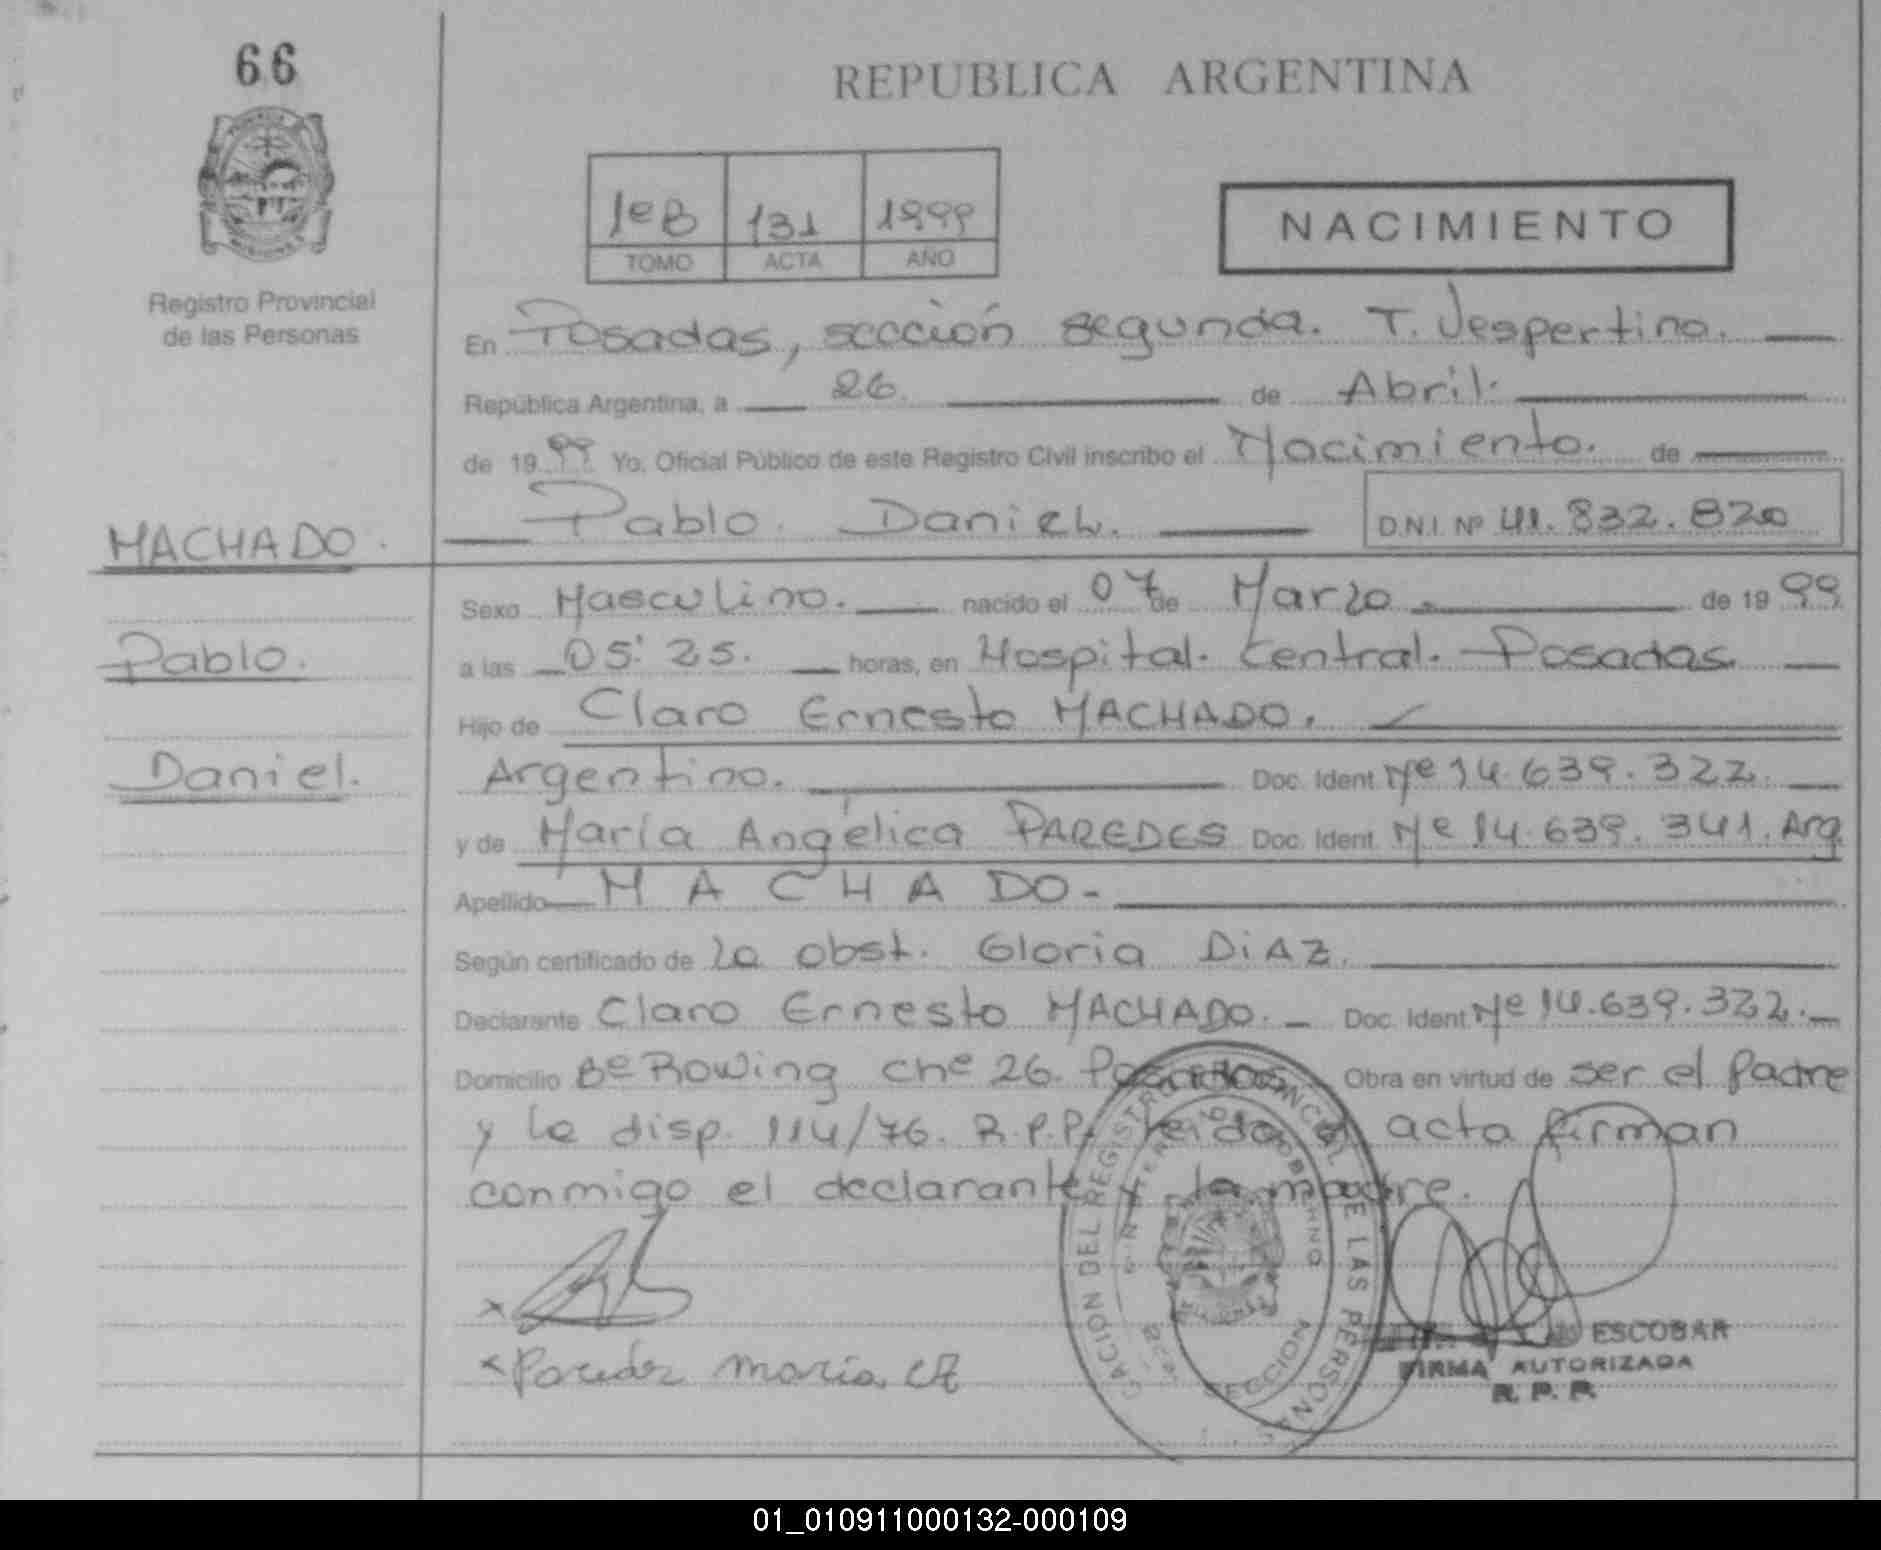 66
REPUBLICA ARGENTINA
1º B 131 1999
TOMO ACTA AÑO
NACIMIENTO
Registro Provincial
de las Personas
En Posadas, sección segunda. T. Vespertino.
República Argentina, a 26. de Abril.
de 1999 Yo, Oficial Público de este Registro Civil inscribo el Nacimiento. de
Pablo. Daniel. D.N.I. Nº 41.832.820
MACHADO.
Pablo.
Daniel.
Sexo Masculino. nacido el 07 de Marzo. de 1999
a las 05:25. horas, en Hospital. Central. Posadas
Hijo de Claro Ernesto MACHADO.
Argentino. Doc. Ident. Nº 14.639.322.
y de María Angélica PAREDES Doc. Ident. Nº 14.639.341. Arg.
Apellido MACHADO-
Según certificado de la obst. Gloria DiAZ.
Declarante Claro Ernesto MACHADO. Doc. Ident. Nº 14.639.322.
Domicilio Bº Rowing chº 26. Posadas Obra en virtud de ser el padre
y la disp. 114/76. R.P.P. leída el acta firman
conmigo el declarante y la madre.
REGISTRO PROVINCIAL DE LAS PERSONAS
SECCION
ESCOBAR
FIRMA AUTORIZADA
R. P. P.
x Paredes maria
01_010911000132-000109